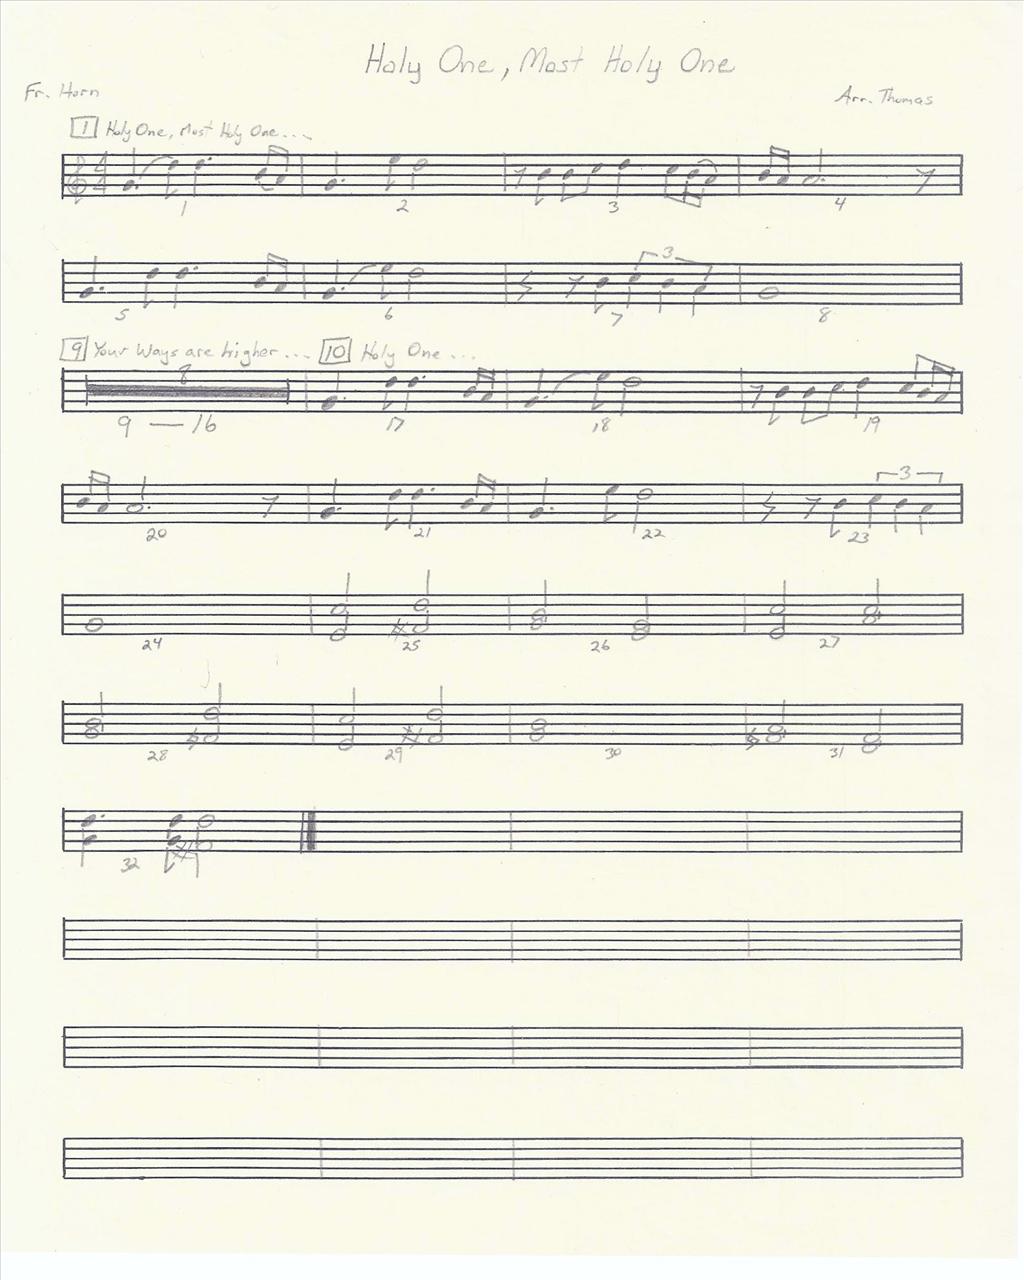 Holy One, Most Holy One
Fr. Horn
Arr. Thomas
1 Holy One, Most Holy One...
4
4
1 2 3 4
3
5 6 7 8
9 Your Ways are higher... 10 Holy One...
8
9 — 16 17 18 19
3
20 21 22 23
24 25 26 27
28 29 30 31
32